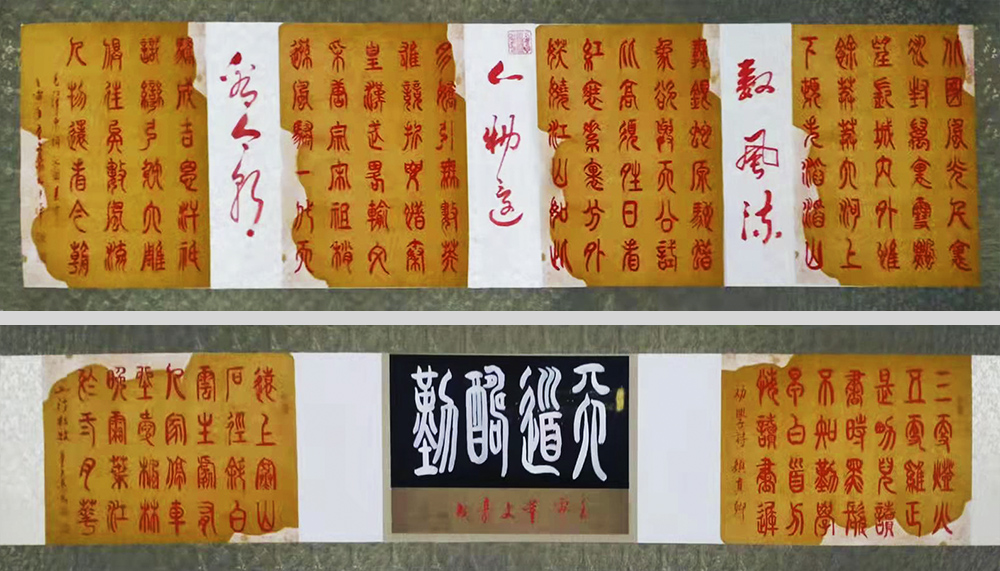 北國風光千里
冰封萬里雪飄
望長城内外惟
餘莽莽大河上
下頓失滔滔山
數風流
舞銀蛇原馳蠟
象欲與天公試
比高須晴日看
紅裝素裹分外
妖嬈江山如此
人物還
多嬌引無數英
雄競折腰惜秦
皇漢武略輸文
采唐宗宋祖稍
遜風騷一代天
看今朝
驕成吉思汗祇
識彎弓射大雕
俱往矣數風流
人物還看今朝
三更燈火
五更雞正
是男兒讀
書時黑髮
不知勤學
早白首方
悔讀書遲
天道酬勤
遠上寒山
石徑斜白
雲生處有
人家停車
坐愛楓林
晚霜葉紅
於二月花
山行杜牧